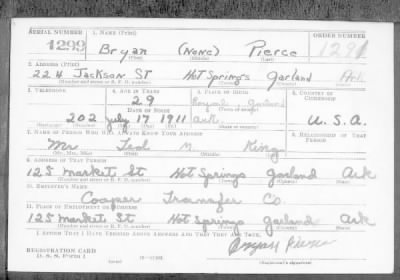 SERIAL NUMBER 1. NAME (Print) ORDER NUMBER
1299 Bryan (None) Pierce 1291
(First) (Middle) (Last)
2. ADDRESS (Print)
224 Jackson St Hot Springs Garland Ark
(Number and street or R. F. D. number) (Town) (County) (State)
3. TELEPHONE 4. AGE IN YEARS 5. PLACE OF BIRTH 6. COUNTRY OF CITIZENSHIP
29 Garland
DATE OF BIRTH (Town or county)
202 July 17 1911 Ark. U.S.A.
(Mo.) (Day) (Yr.) (State or country)
7. NAME OF PERSON WHO WILL ALWAYS KNOW YOUR ADDRESS 8. RELATIONSHIP OF THAT PERSON
Mr Ted M. King
(Mr., Mrs., Miss) (First) (Middle) (Last)
9. ADDRESS OF THAT PERSON
125 Market St Hot Springs Garland Ark
(Number and street or R. F. D. number) (Town) (County) (State)
10. EMPLOYER'S NAME
Cooper Transfer Co.
11. PLACE OF EMPLOYMENT OR BUSINESS
125 Market St Hot Springs Garland Ark
(Number and street or R. F. D. number) (Town) (County) (State)
I AFFIRM THAT I HAVE VERIFIED ABOVE ANSWERS AND THAT THEY ARE TRUE.
REGISTRATION CARD Bryan Pierce
D. S. S. FORM 1 (Registrant's signature)